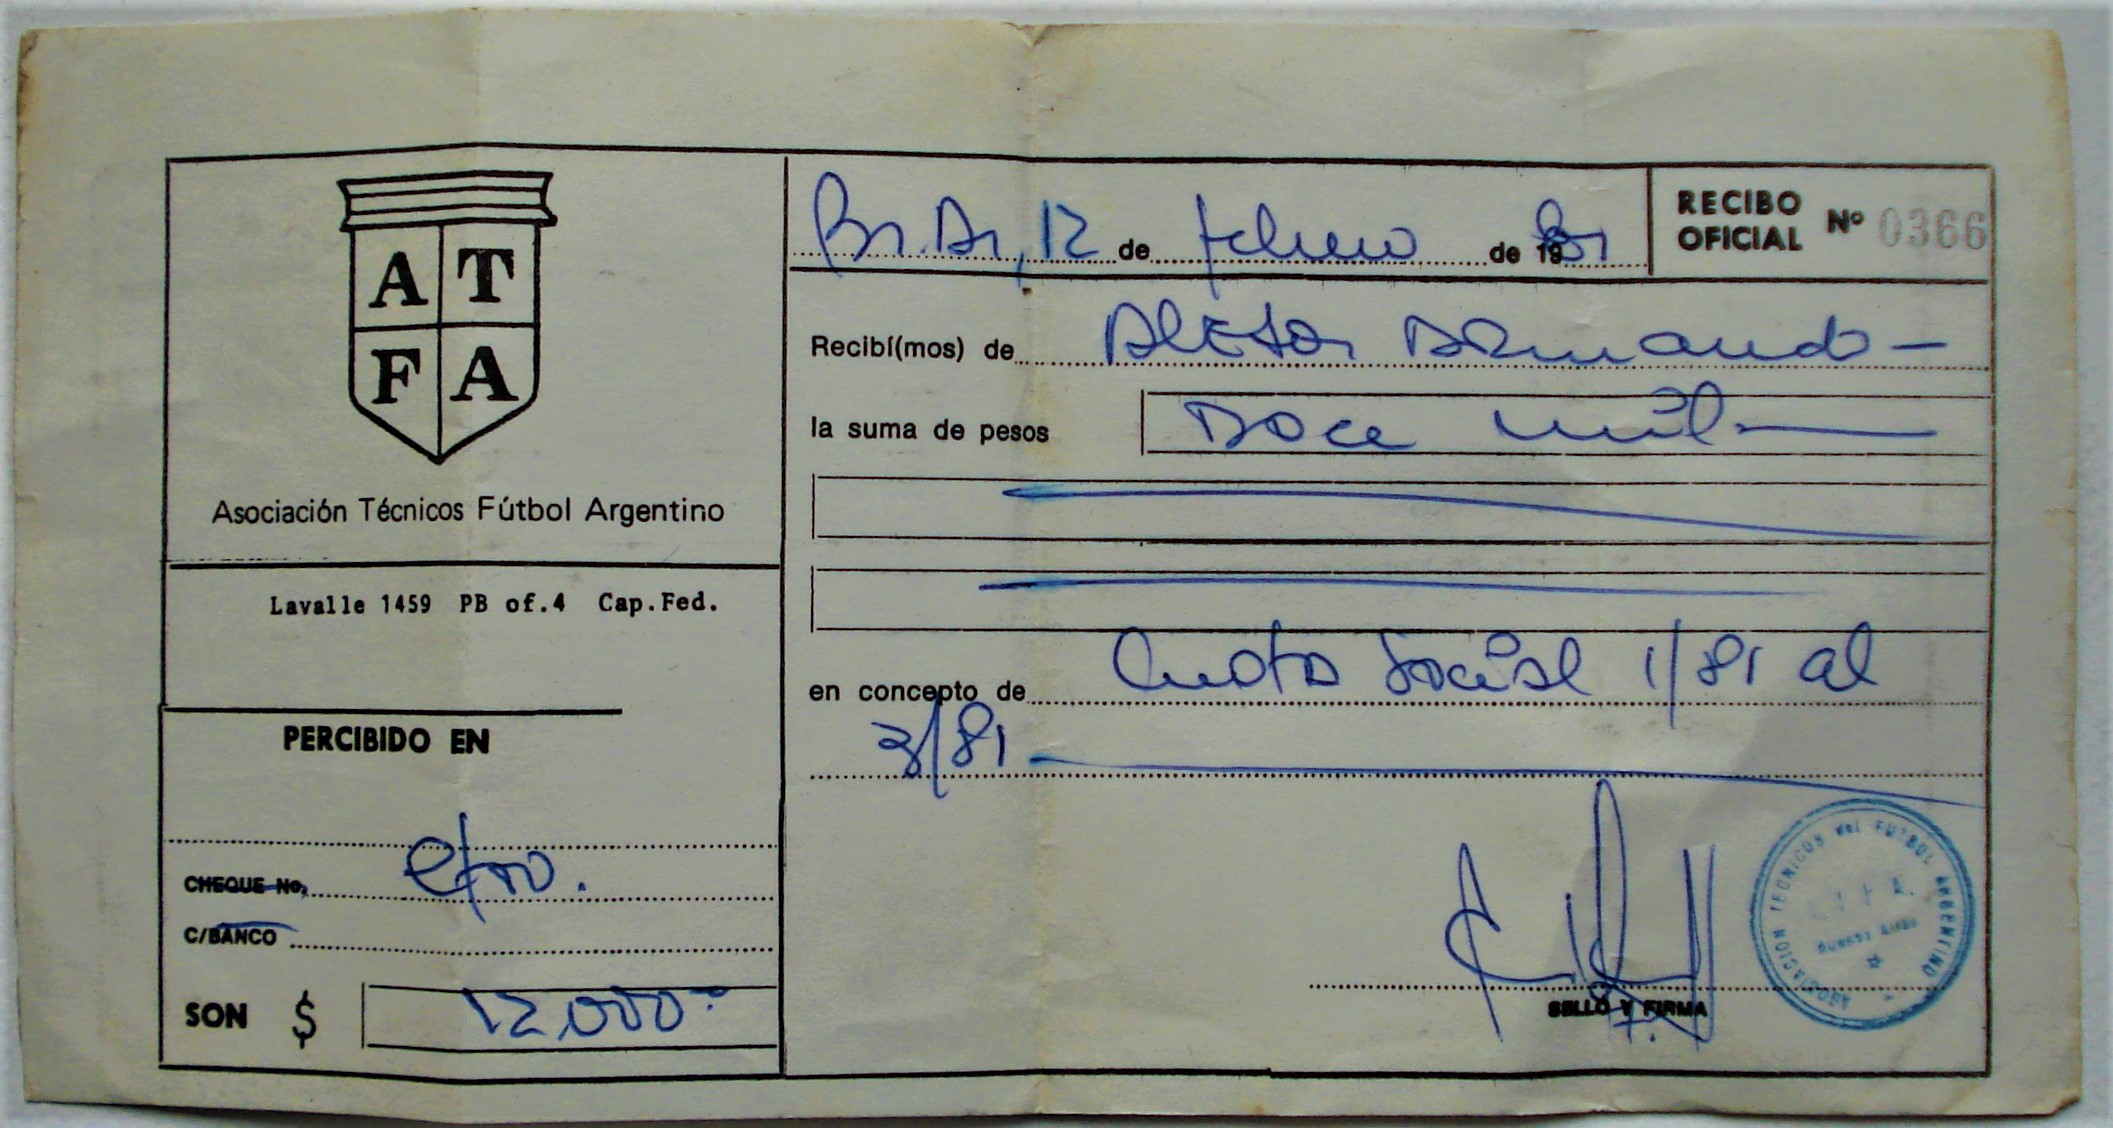 A T
F A
Asociación Técnicos Fútbol Argentino
Lavalle 1459 PB of.4 Cap.Fed.
PERCIBIDO EN
CHEQUE No. efvo.
C/BANCO
SON $ 12.000.-
Bs. As, 12 de febrero de 1981
RECIBO OFICIAL Nº 0366
Recibí(mos) de Armando -
la suma de pesos Doce mil
en concepto de Cuota Social 1/81 al
3/81
SELLO Y FIRMA
ASOCIACION TECNICOS del FUTBOL ARGENTINO
A.T.F.A.
Buenos Aires